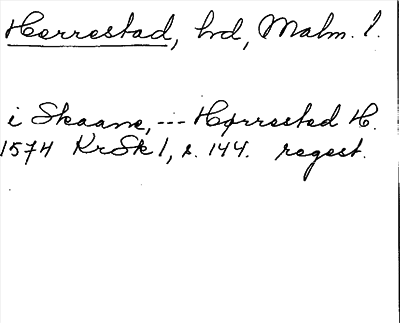 Herrestad, hd, Malm. l.
i Skaane, --- Hørrested H.
1574 KrSk 1, s. 144. regest.